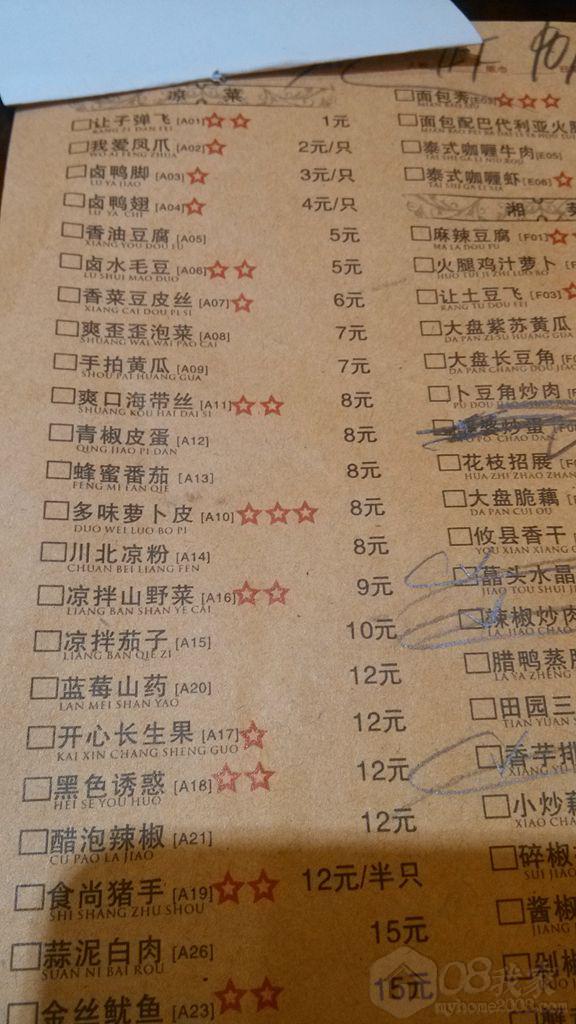 凉 菜
让子弹飞 [A01] 1元
RANG ZI DAN FEI
我爱凤爪 [A02] 2元/只
WO AI FENG ZHUA
卤鸭脚 [A03] 3元/只
LU YA JIAO
卤鸭翅 [A04] 4元/只
LU YA CHI
香油豆腐 [A05] 5元
XIANG YOU DOU FU
卤水毛豆 [A06] 5元
LU SHUI MAO DUO
香菜豆皮丝 [A07] 6元
XIANG CAI DOU PI SI
爽歪歪泡菜 [A08] 7元
SHUANG WAI WAI PAO CAI
手拍黄瓜 [A09] 7元
SHOU PAI HUANG GUA
爽口海带丝 [A11] 8元
SHUANG KOU HAI DAI SI
青椒皮蛋 [A12] 8元
QING JIAO PI DAN
蜂蜜番茄 [A13] 8元
FENG MI FAN QIE
多味萝卜皮 [A10] 8元
DUO WEI LUO BO PI
川北凉粉 [A14] 8元
CHUAN BEI LIANG FEN
凉拌山野菜 [A16] 9元
LIANG BAN SHAN YE CAI
凉拌茄子 [A15] 10元
LIANG BAN QIE ZI
蓝莓山药 [A20] 12元
LAN MEI SHAN YAO
开心长生果 [A17] 12元
KAI XIN CHANG SHENG GUO
黑色诱惑 [A18] 12元
HEI SE YOU HUO
醋泡辣椒 [A21] 12元
CU PAO LA JIAO
食尚猪手 [A19] 12元/半只
SHI SHANG ZHU SHOU
蒜泥白肉 [A26] 15元
SUAN NI BAI ROU
金丝鱿鱼 [A23] 15元
面包秀
面包配巴代利亚火腿
泰式咖喱牛肉 [E05]
TAI SHI GA LI NIU ROU
泰式咖喱虾 [E06]
TAI SHI GA LI XIA
湘
麻辣豆腐 [F01]
MA LA DOU FU
火腿鸡汁萝卜
HUO TUI JI ZHI LUO BO
让土豆飞 [F03]
RANG TU DOU FEI
大盘紫苏黄瓜
DA PAN ZI SU HUANG GUA
大盘长豆角
DA PAN CHANG DOU JIAO
卜豆角炒肉
炒蛋
CHAO DAN
花枝招展
HUA ZHI ZHAO ZHAN
大盘脆藕
DA PAN CUI OU
攸县香干
YOU XIAN XIANG
藠头水晶
JIAO TOU SHUI
辣椒炒肉
LA JIAO CHAO
腊鸭蒸
LA YA ZHENG
田园三
TIAN YUAN
香芋排
XIANG YU
小炒藕
XIAO CHAO
碎椒
SUI JIAO
酱椒
JIANG
剁椒
08我家
myhome2008.com